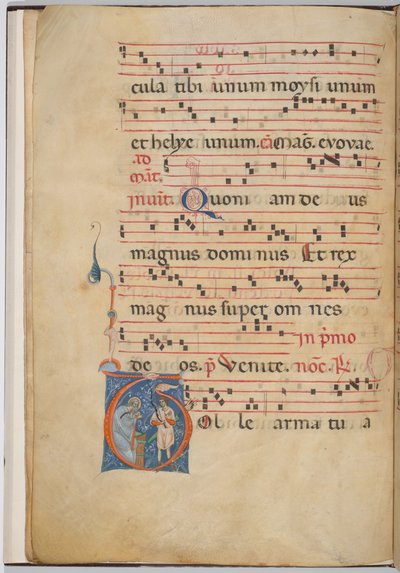 cula tibi unum moysi unum
et helye unum. cā Mag̃. evovae.
ad
mat̃.
invit̃. Quoni am de us
magnus dominus Et rex
mag nus super om nes
in p̃mo
de os. p̃ Venite. noc̃e. R̃
Tol le arma tu a